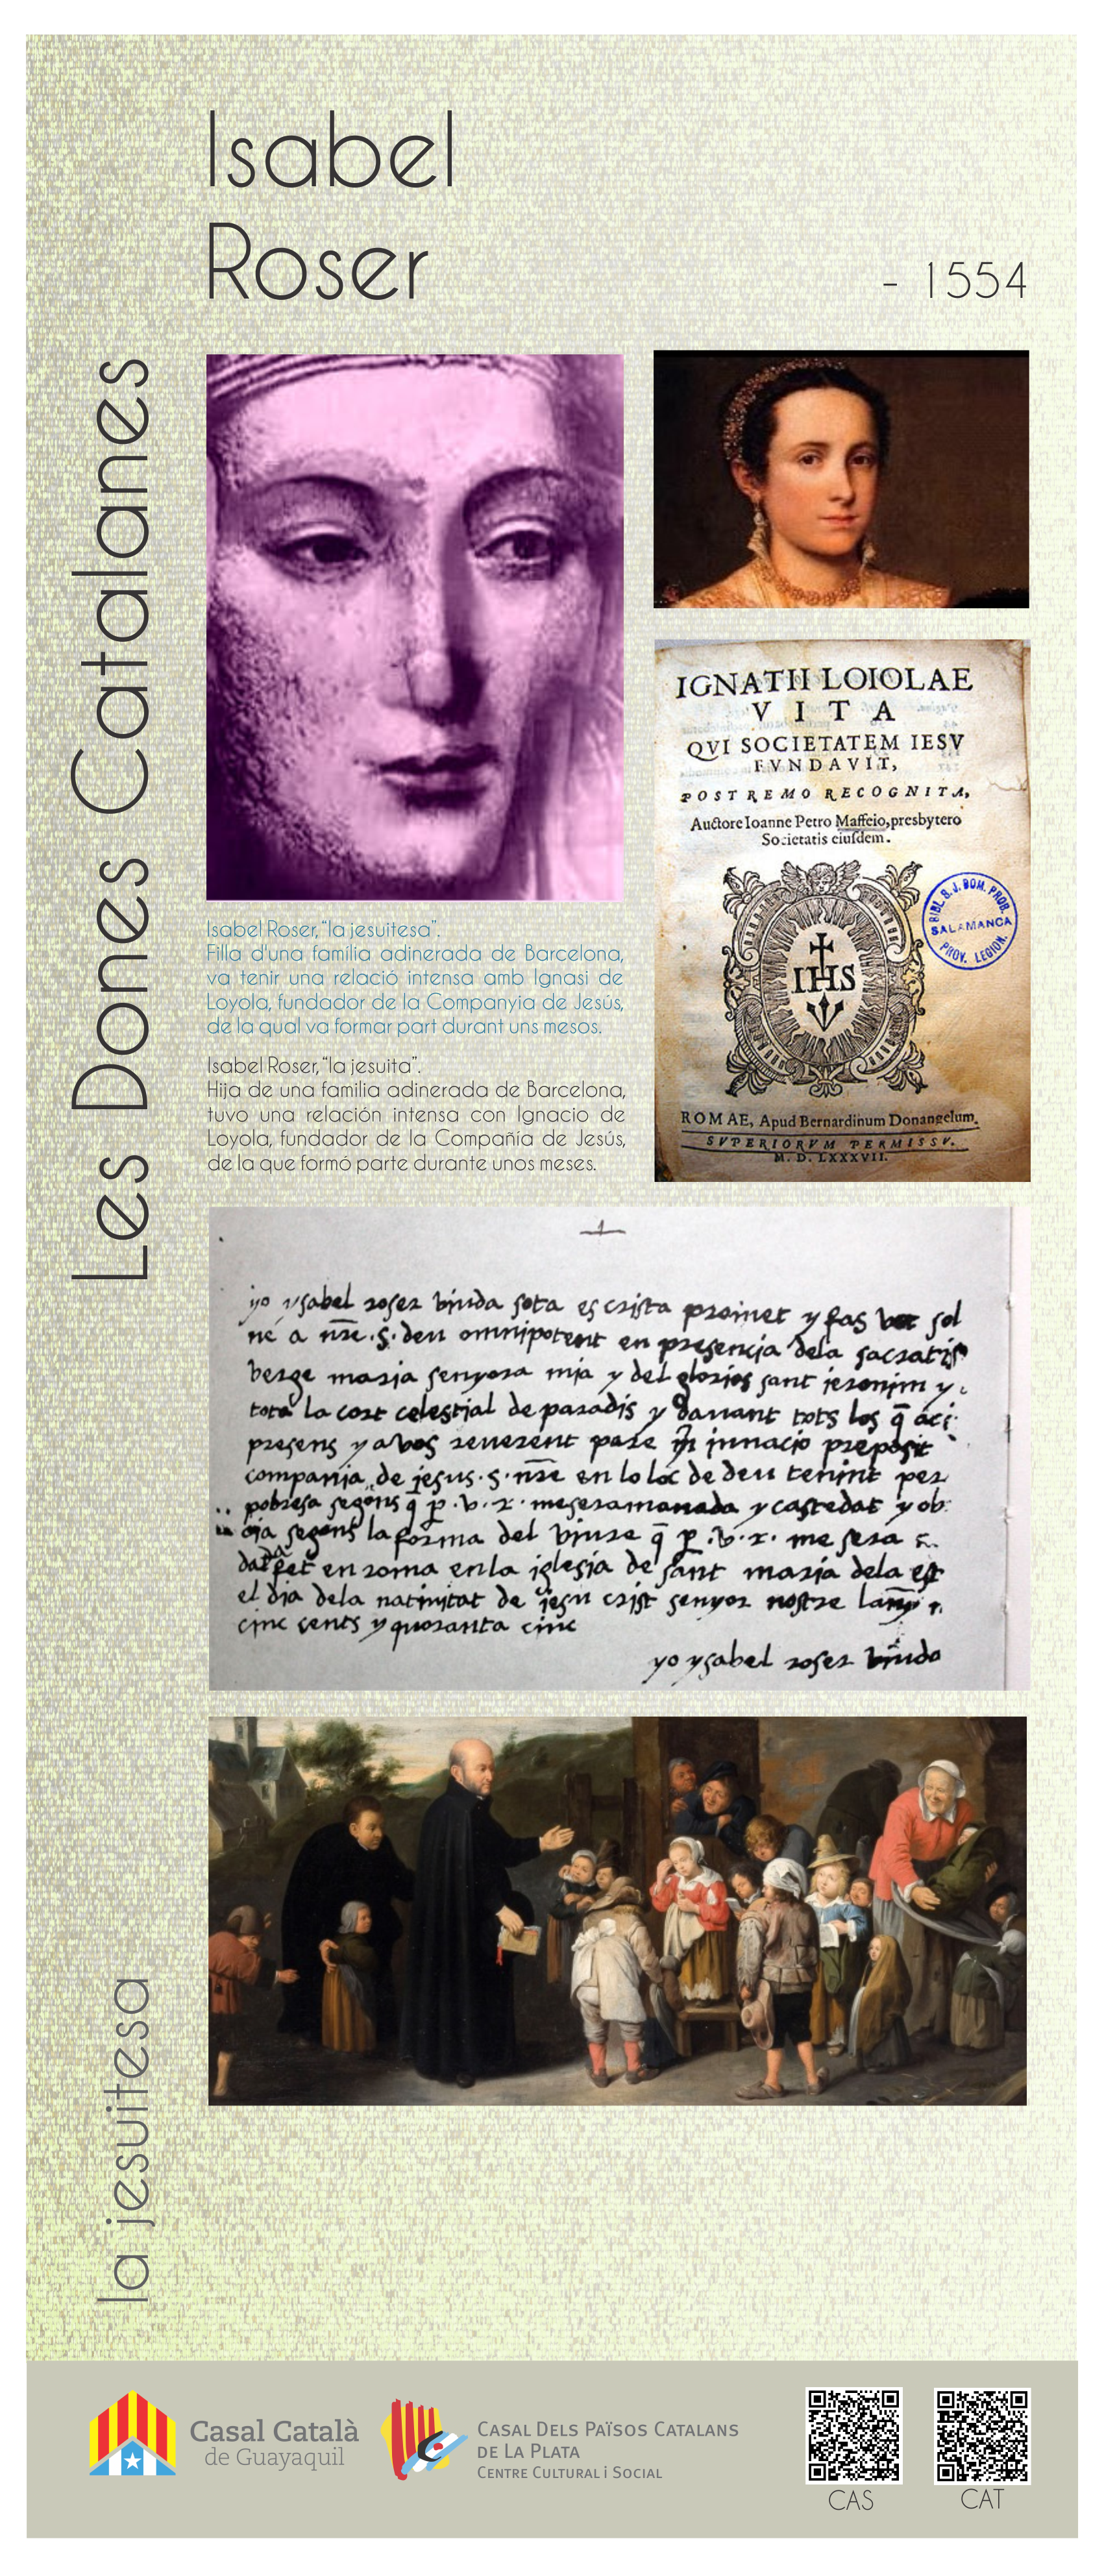 Isabel
Roser
- 1554
Les Dones Catalanes
Isabel Roser, “la jesuitesa”.
Filla d'una família adinerada de Barcelona,
va tenir una relació intensa amb Ignasi de
Loyola, fundador de la Companyia de Jesús,
de la qual va formar part durant uns mesos.
Isabel Roser, “la jesuita”.
Hija de una familia adinerada de Barcelona,
tuvo una relación intensa con Ignacio de
Loyola, fundador de la Compañía de Jesús,
de la que formó parte durante unos meses.
IGNATII LOIOLAE
VITA
QVI SOCIETATEM IESV
FVNDAVIT,
POSTREMO RECOGNITA,
Auctore Ioanne Petro Maffeio, presbytero
Societatis eiusdem.
BIBL. S. J. DOM. PROB.
SALAMANCA
PROV. LEGION.
IHS
ROMAE, Apud Bernardinum Donangelum.
SVPERIORVM PERMISSV.
M. D. LXXXVII.
1
yo ysabel roser biuda sota escrista promet y fas vot sol
ne a nre .s. deu omnipotent en presencia dela sacratis
berge maria senyora mia y del glorios sant jeronim y
tota la cort celestial de paradis y davant tots los q̄ aci
presens y a vos reverent pare innacio preposit
compania de jesus .s. nre en lo loc de deu tenint per
pobresa segons q̄ p .v. r. me sera manada y castedat y ob
segons la forma del viure q̄ p .v. r. me sera
fet en roma en la iglesia de sant maria dela
el dia dela natiuitat de jesu crist senyor nostre
cinc cents y quoranta cinc
yo ysabel roser biuda
la jesuitesa
Casal Català
de Guayaquil
CASAL DELS PAÏSOS CATALANS
DE LA PLATA
CENTRE CULTURAL i SOCIAL
CAS
CAT